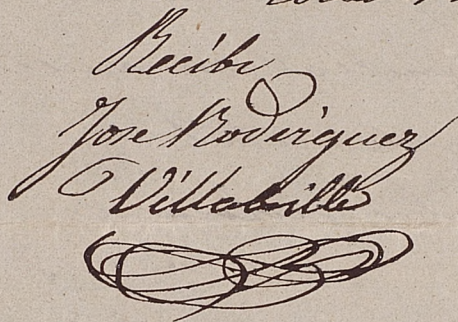 Recibi
Jose Rodriguez
Villabrille